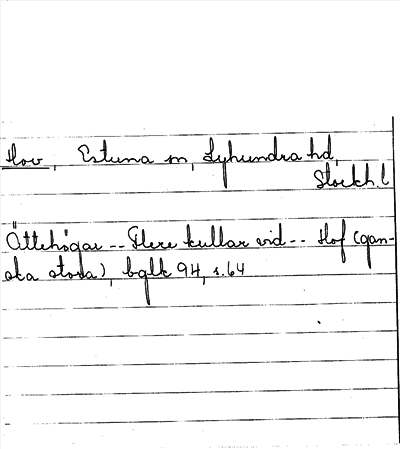 Hov, Estuna sn, Lyhundra hd,
Stockh. l
Ättehögar -- Flere kullar vid -- Hof (gan-
ska stora), bglk 94, s. 64